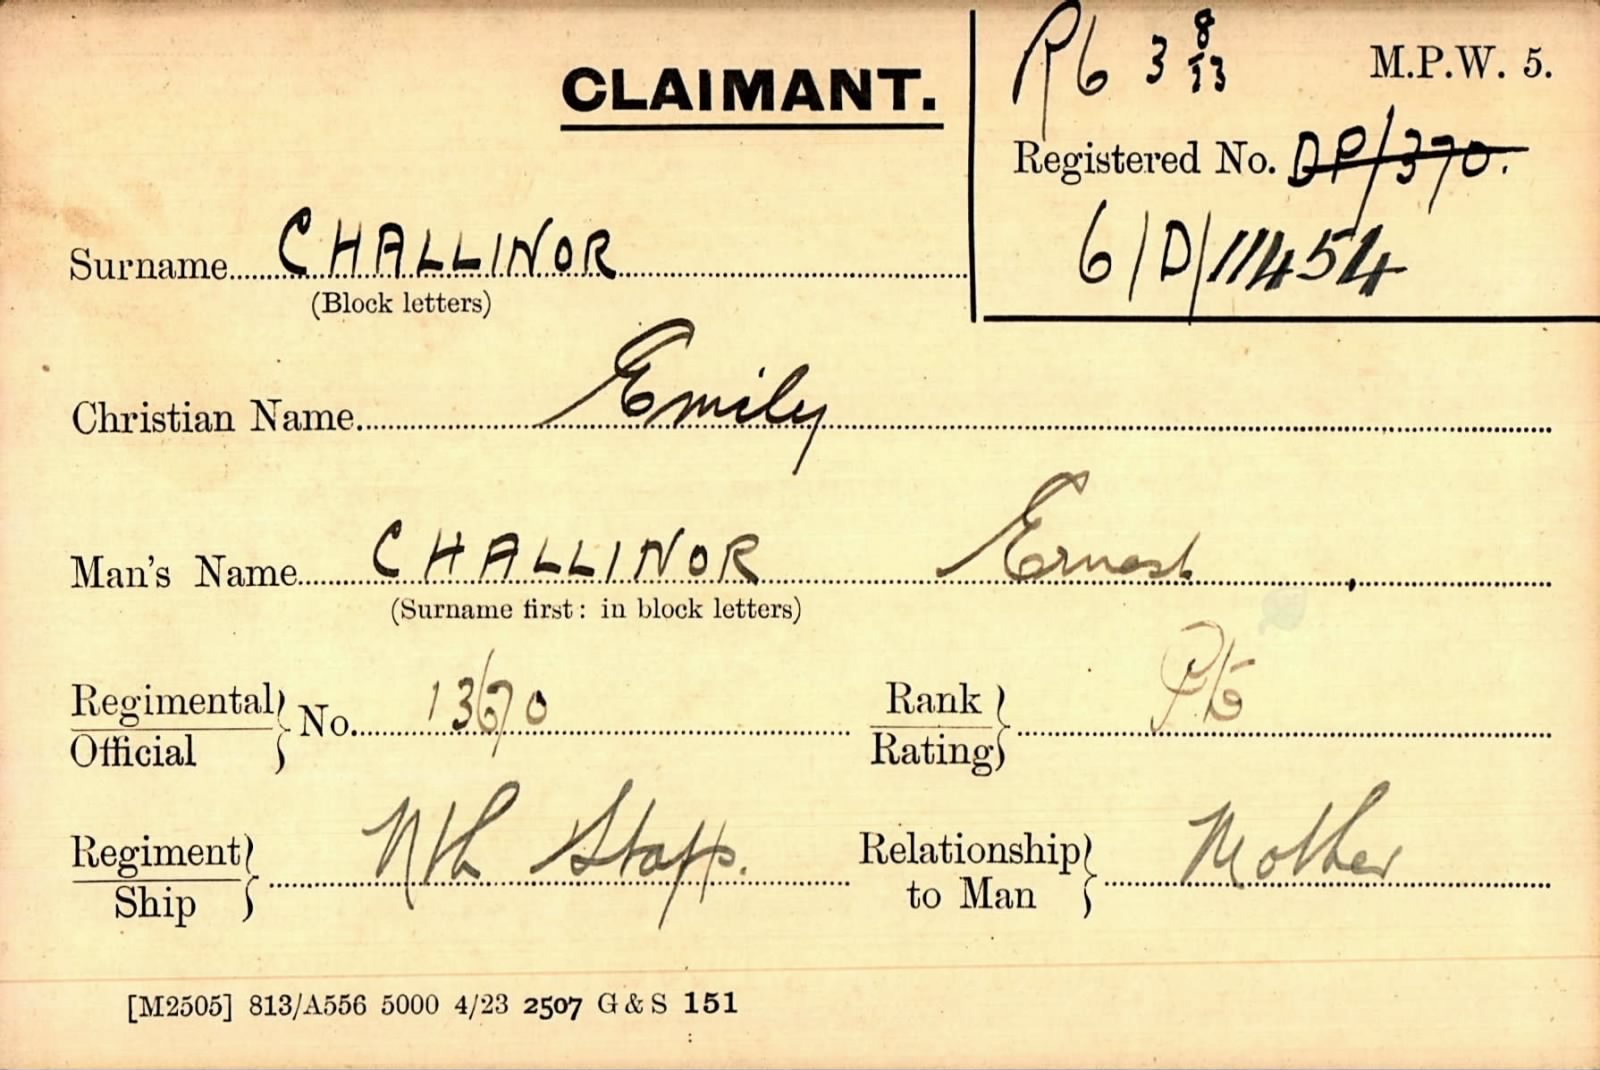 R6 3 8/13
M.P.W. 5.
CLAIMANT.
Registered No. DP/370.
6/D/11454
Surname CHALLINOR
(Block letters)
Christian Name Emily
Man's Name CHALLINOR Ernest
(Surname first: in block letters)
Regimental/Official No. 13670
Rank/Rating Pte
Regiment/Ship Nth Staffs.
Relationship to Man Mother
[M2505] 813/A556 5000 4/23 2507 G & S 151